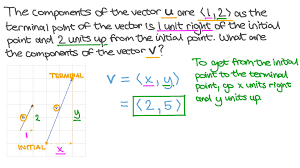 The components of the vector u are ⟨1, 2⟩ as the
terminal point of the vector is 1 unit right of the initial
point and 2 units up from the initial point. What are
the components of the vector v?
TERMINAL
u
2
1
v
y
x
INITIAL
v = ⟨x, y⟩
= ⟨2, 5⟩
To get from the initial
point to the terminal
point, go x units right
and y units up.